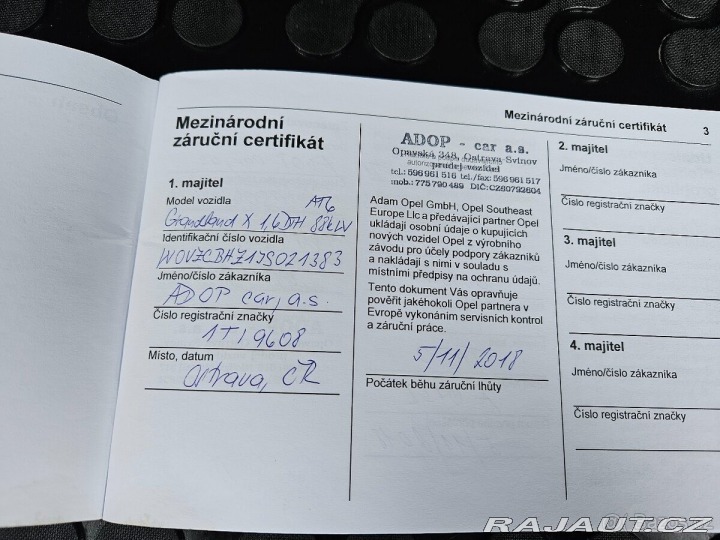 Mezinárodní záruční certifikát 3
Mezinárodní
záruční certifikát
1. majitel
Model vozidla AT6
Grandland X 1,6 DTH 88kW
Identifikační číslo vozidla
W0VZCBHZ17S021383
Jméno/číslo zákazníka
ADOP car, a.s.
Číslo registrační značky
1TI 9608
Místo, datum
Ostrava, ČR
ADOP - car a.s.
Opavská 348, Ostrava-Svinov
prodej vozidel
tel.: 596 961 516 tel./fax: 596 961 517
mob.: 775 790 489 DIČ: CZ60792604
Adam Opel GmbH, Opel Southeast
Europe Llc a předávající partner Opel
ukládají osobní údaje o kupujících
nových vozidel Opel z výrobního
závodu pro účely podpory zákazníků
a nakládají s nimi v souladu s
místními předpisy na ochranu údajů.
Tento dokument Vás opravňuje
pověřit jakéhokoli Opel partnera v
Evropě vykonáním servisních kontrol
a záruční práce.
5/11/2018
Počátek běhu záruční lhůty
2. majitel
Jméno/číslo zákazníka
Číslo registrační značky
3. majitel
Jméno/číslo zákazníka
Číslo registrační značky
4. majitel
Jméno/číslo zákazníka
Číslo registrační značky
RAJAUT.CZ